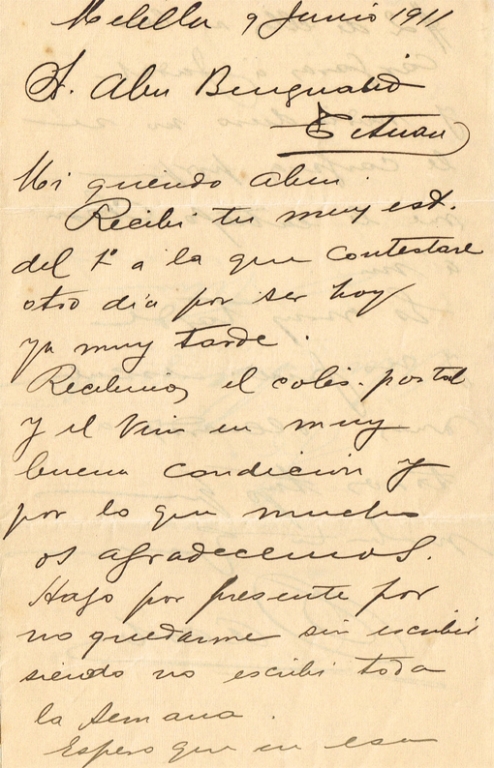 Melilla 9 Junio 1911
A. Abu Bengualid
Tetuan
Mi querido Abu.
Recibi tu muy est.
del 1º a la que contestare
otro dia por ser hoy
ya muy tarde.
Recibimos el colis-postal
y el Vino en muy
buena condicion y
por lo que mucho
os agradecemos.
Hago por presente por
no quedarme sin escribir
siendo no escribi toda
la semana.
Espero que en esa